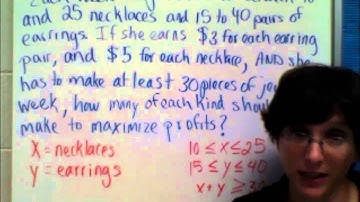 and 25 necklaces and 15 to 40 pairs of
earrings. If she earns $3 for each earring
pair, and $5 for each necklace, AND she
has to make at least 30 pieces of
week, how many of each kind
make to maximize profits?
x = necklaces
y = earrings
10 ≤ x ≤ 25
15 ≤ y ≤ 40
x + y ≥